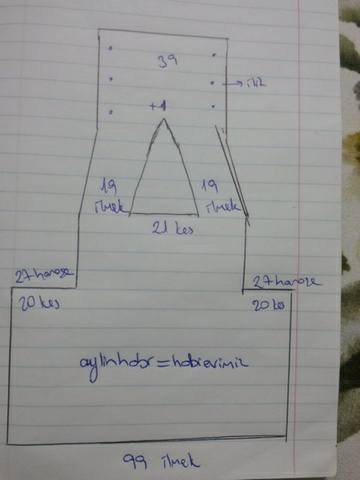 39
→ ilik
+1
19 ilmek
19 ilmek
21 kes
27 haroşa
27 haroşa
20 kes
20 kes
aylinhobi=hobievimiz
99 ilmek